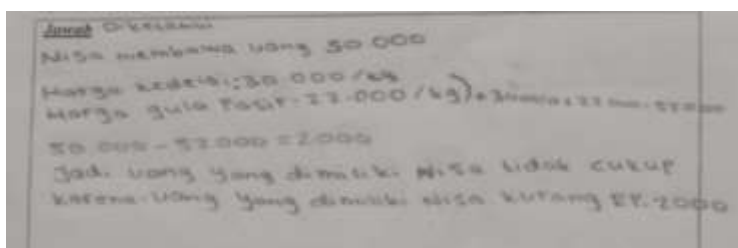 Jawab Diketahui
Nisa membawa uang 50.000
Harga kedelai: 30.000/kg
Harga gula Pasir: 22.000/kg) = 30000 + 22000 = 52000
50.000 - 52.000 = 2000
Jadi uang yang dimiliki Nisa tidak cukup
karena uang yang dimiliki Nisa kurang RP. 2000